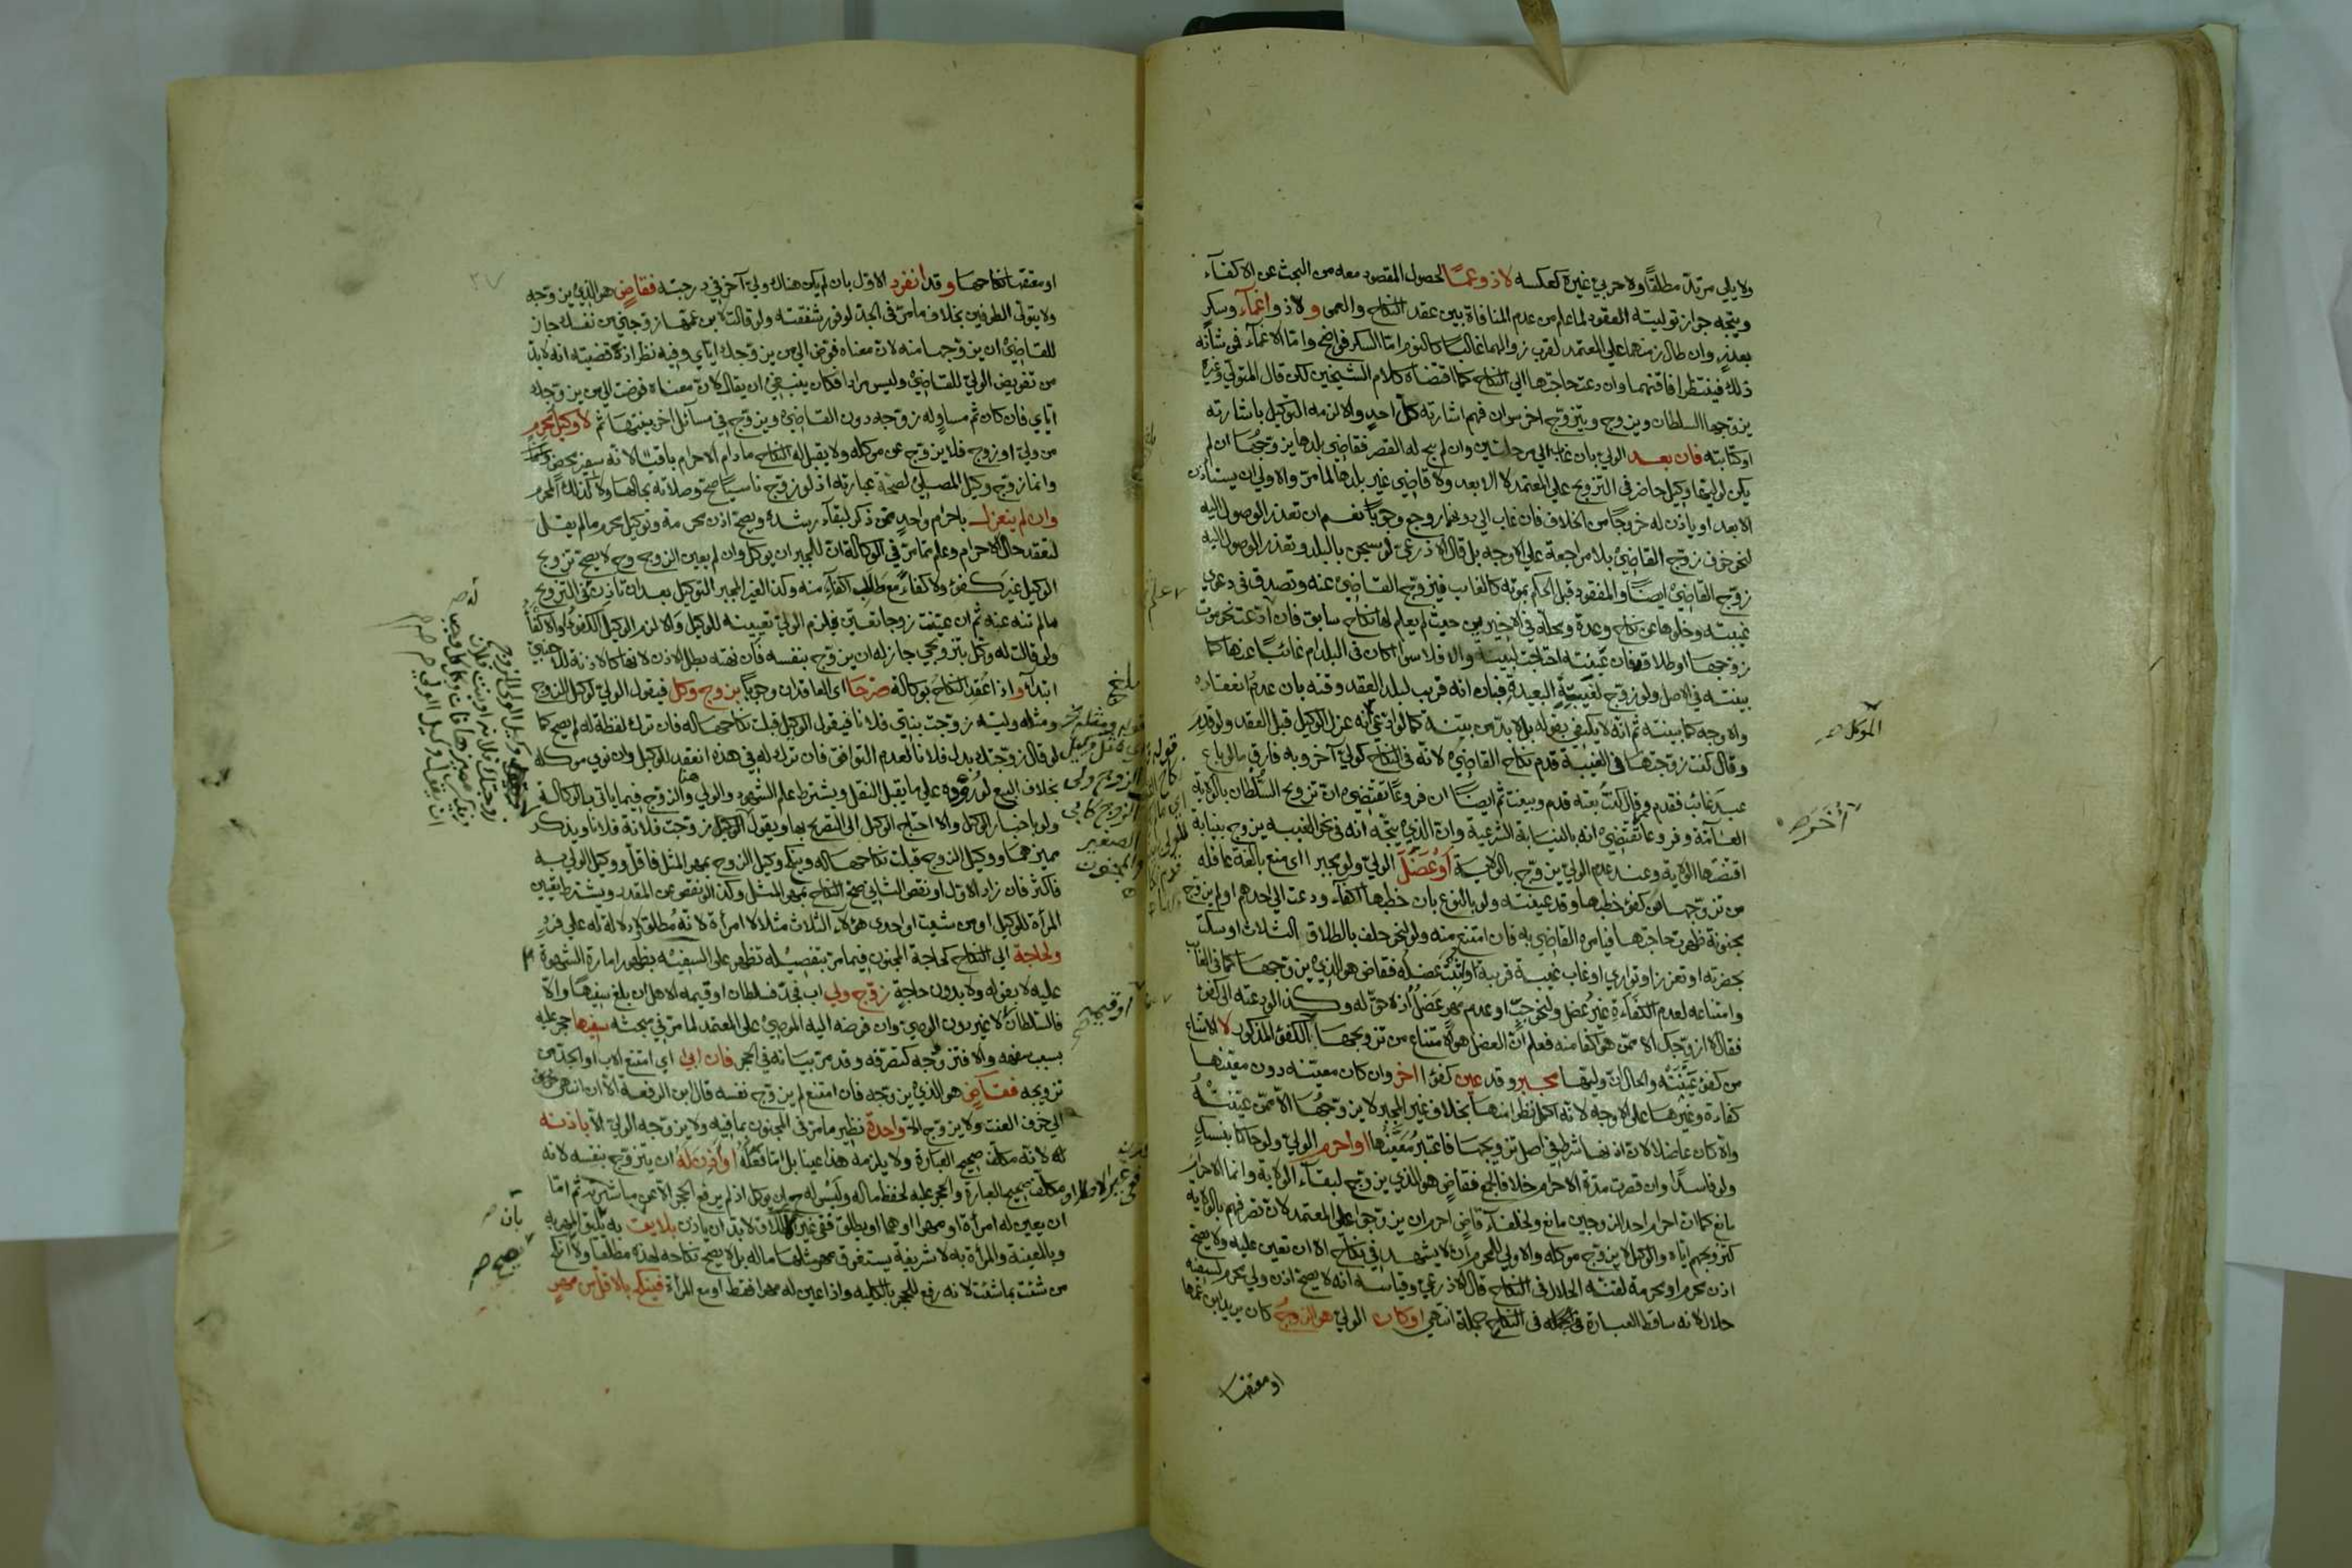 ولا يلي مرتد مطلقًا ولا حربي غيره كعكسه لا ذو عمًا لحصول المقصود معه من البحث عن الاكفاء
ويتجه جواز توليته العقود لما علم من عدم المنافاة بين عقد النكاح والعمى ولا ذو اغماء وسكر
بعذر وان طال زمنهما على المعتمد لقرب زوالهما غالبًا كالنوم امّا السكر فواضح وامّا الاغماء فمن شأنه
ذلك فينتظر افاقتهما وان دعت حاجتها الي النكاح كما اقتضاه كلام الشيخين لكن قال المتولي وغيره
يزوجها السلطان ويزوج ويتزوج اخرس ان فهم اشارته كل احد والا لزمه التوكيل باشارته
اوكتابته فان بعد الولي بان غاب الي مرحلتين وان لم يبح له القصر فقاضي بلدها يزوجها ان لم
يكن لوليها وكيل حاضر في التزويج علي المعتمد لا الابعد ولا قاضي غير بلدها لما مر والاولى ان يستأذن
الابعد او ياذن له خروجًا من الخلاف فان غاب الي دونهما روجع وجوبًا نعم ان تعذر الوصول اليه
لنحو خوف زوج القاضي بلا مراجعة علي الاوجه بل قال الاذرعي لو سجن بالبلد وتعذر الوصول اليه
زوج القاضي ايضًا والمفقود قبل الحكم بموته كالغايب فيزوج القاضي عنه وتصدق في دعوى
غيبته وخلوها عن نكاح وعدة ومحله في الاخيرين حيث لم يعلم لها نكاح سابق فان ادعت نحو موت
زوجها او طلاقه فان عينته احتاجت لبينة والا فلا سوا كان في البلد ام غائبًا عنها كما
بينته في الاصل ولو زوج لغيبته البعيدة فبان انه قريب لبلد العقد وقته بان عدم انعقاده
والاوجه كما بينته ثم انه لا يكتفي بقوله بل لا بد من بينة كما لو ادعي انه عزل الوكيل قبل العقد ولو قدم
وقال كنت زوجتها في الغيبة قدم نكاح القاضي لانه في النكاح كولي آخر وبه فارق ما لو باع
عبد غائب فقدم وقال كنت بعته قدم وبينت ثم ايضًا ان فروعًا تقتضي ان تزويج السلطان بالولاية
العامة وفروعا تقتضي انه بالنيابة الشرعية وان الذي يتجه انه في نحو الغيبه يزوج بنيابة
اقتضتها الولاية وعند عدم الولي يزوج بالولاية او عضل الولي ولو مجبرا اي منع بالغة عاقلة
من تزوجها من كفؤ خطبها وقد عينته ولو بالنوع بان خطبها اكفاء ودعت الي احدهم او لم يزوج
مجنونة ظهرت حاجتها فيامره القاضي به فان امتنع منه ولو لنحو حلف بالطلاق الثلاث او سكت
بحضرته او تعزز او تواري او غاب غيبة قريبة او ثبت عضله فقاض هو الذي يزوجها كما في الغائب
وامتناعه لعدم الكفاءة غير عضل ولنحو جب او عدم مهر عضل اذ لا حق له وكذا لو دعته الي كفؤ
فقال لا ازوجك الا ممن هو اكفا منه فعلم ان العضل هو الامتناع من تزويجها الكفؤ المذكور لا الامتناع
من كفؤ عينته والحال ان وليها مجبر وقد عين كفؤا اخر وان كان معينه دون معينها
كفاءة وغيرها علي الاوجه لانه اكمل نظرا منها بخلاف غير المجبر لا يزوجها الا ممن عينته
والا كان عاضلا لان اذنها شرط في اصل تزويجها فاعتبر معينها او احرم الولي ولو حاكما بنسك
ولو فاسدًا وان قصرت مدة الاحرام خلافا لجمع فقاض هو الذي يزوج لبقاء الولاية وانما الاحرام
مانع كما ان احرام احد الزوجين مانع ولخلفاء قاض احرم ان يزوجوا على المعتمد لان تصرفهم بالولاية
كتزويجهم اياه والوكيل لا يزوج موكله والاولي للمحرم ان لا يشهد في نكاح الا ان تعين عليه ولا يصح
اذن محرم او محرمة لقنه الحلال في النكاح قال الاذرعي وقياسه انه لا يصح اذن ولي محرم لسفيه
حلال لانه ساقط العبارة في النكاح جملة انتهي او كان الولي هو الزوج كان يريد ابن عمها
او معتقها
الموكل صح
او معتقها نكاحها وقد انفرد الاول بان لم يكن هناك ولي آخر في درجته فقاض هو الذي يزوجه
ولا يتولي الطرفين بخلاف ما مر في الجد لوفور شفقته ولو قالت لابن عمها زوجني من نفسك جاز
للقاضي ان يزوجها منه لان معناه فوض الي من يزوجك اياي وفيه نظر اذ قضيته انه لا بد
من تفويض الولي للقاضي وليس مرادا فكان ينبغي ان يقال لان معناه فوضت الي من يزوجك
اياي فان كان ثم مساو له زوجه دون القاضي ويزوج في مسائل اخر بينتها ثم لا وكيل محرم
من ولي او زوج فلا يزوج عن موكله ولا يقبل له النكاح ما دام الاحرام باقيا لانه سفير محض
وانما زوج وكيل المصلي لصحة عبارته اذ لو زوج ناسيًا صح وصلاته بحالها ولا كذلك المحرم
وان لم ينعزل باحرام واحد ممن ذكر لبقاء رشده ويصح اذن محرمة وتوكيل محرم ما لم يقل
لتعقد حال الاحرام وعلم مما مر في الوكالة ان للمجبر ان يوكل وان لم يعين الزوج وح لا يصح تزويج
الوكيل غير كفؤ ولا كفاء مع طلب اكفاء منه وكذا لغير المجبر التوكيل بعد ان تاذن في التزويج
مالم تنه عنه ثم ان عينت زوجا تعين فيلزم الولي تعيينه للوكيل والا لزم الوكيل الكفؤ
ولو قالت له وكل بتزويجي جاز له ان يزوج بنفسه فان نهته بطل الاذن لانها كالاذنة للاجنبي
ابتداء واذا عقد النكاح بوكالة صرحا اي العاقدان وجوبًا بزوج وكل فيقول الولي لوكيل الزوج
ومثله وليه زوجت بنتي فلانا فيقول الوكيل قبلت نكاحها له فان ترك لفظة له لم يصح كما
لو قال زوجتك بدل فلانا لعدم التوافق فان ترك له في هذه انعقد للوكيل وان نوي موكله
بخلاف البيع لوروده علي ما يقبل النقل ويشترط علم الشهود والولي والزوج فيما ياتي بالوكالة
ولو باخبار الوكيل والا احتاج الوكيل الي التصريح بها ويقول الوكيل زوجت فلانة فلانا ويذكر
مميزهما ووكيل الزوج قبلت نكاحها له وينكح وكيل الزوج بمهر المثل فاقل ووكيل الولي به
فاكثر فان زاد الاول او نقص الثاني صح النكاح بمهر المثل وكذا لو نقص عن المقدر ويشترط تعيين
المرأة للوكيل او من شئت او احدى هؤلاء الثلاث مثلا لا امرأة لانه مطلق لا دلالة له علي فرد
ولحاجة الي النكاح كحاجة المجنون فيما مر بتفصيله تظهر على السفيه بظهور امارة الشهوة
عليه لا بقوله ولا بدون حاجة زوج ولي اب فجد فسلطان او قيمه الاهل ان بلغ سفيها والا
فالسلطان لا غير دون الوصي وان فوض اليه الموصي علي المعتمد لما مر في مبحثه سفيها حجر عليه
بسبب سفهه والا فتزوجه كتصرفه وقد مر بيانه في الحجر فان ابي اي امتنع الاب او الجد من
تزويجه فقاض هو الذي يزوجه فان امتنع لم يزوج نفسه قال ابن الرفعة الا ان انتهي خوفه
الي خوف العنت ولا يزوج الا واحدة نظير ما مر في المجنون بما فيه ولا يزوجه الولي الا باذنه
له لانه مكلف صحيح العبارة ولا يلزمه هذا عينا بل اما فعله او اذن له ان يتزوج بنفسه لانه
مكلف صحيح العبارة والحجر عليه لحفظ ماله وليس له ان يوكل اذ لم يرفع الحجر الا عن مباشرته ثم امّا
ان يعين له امرأة او مهرا او هما او يطلق ففي غير الاطلاق لا بد ان ياذن بلايق به يليق المهر به
وبالعينة والمرأة به لا شريفة يستغرق مهر مثلها ماله بل لا يصح نكاحه لهذه مطلقا ولا انكح
من شئت بما شئت لانه رفع للحجر بالكلية واذا عين له مهرا فقط او مع المرأة فينكح بالاقل من مهر
الصغير
والمجنون
او قيمه صح
بان صح
يصح صح